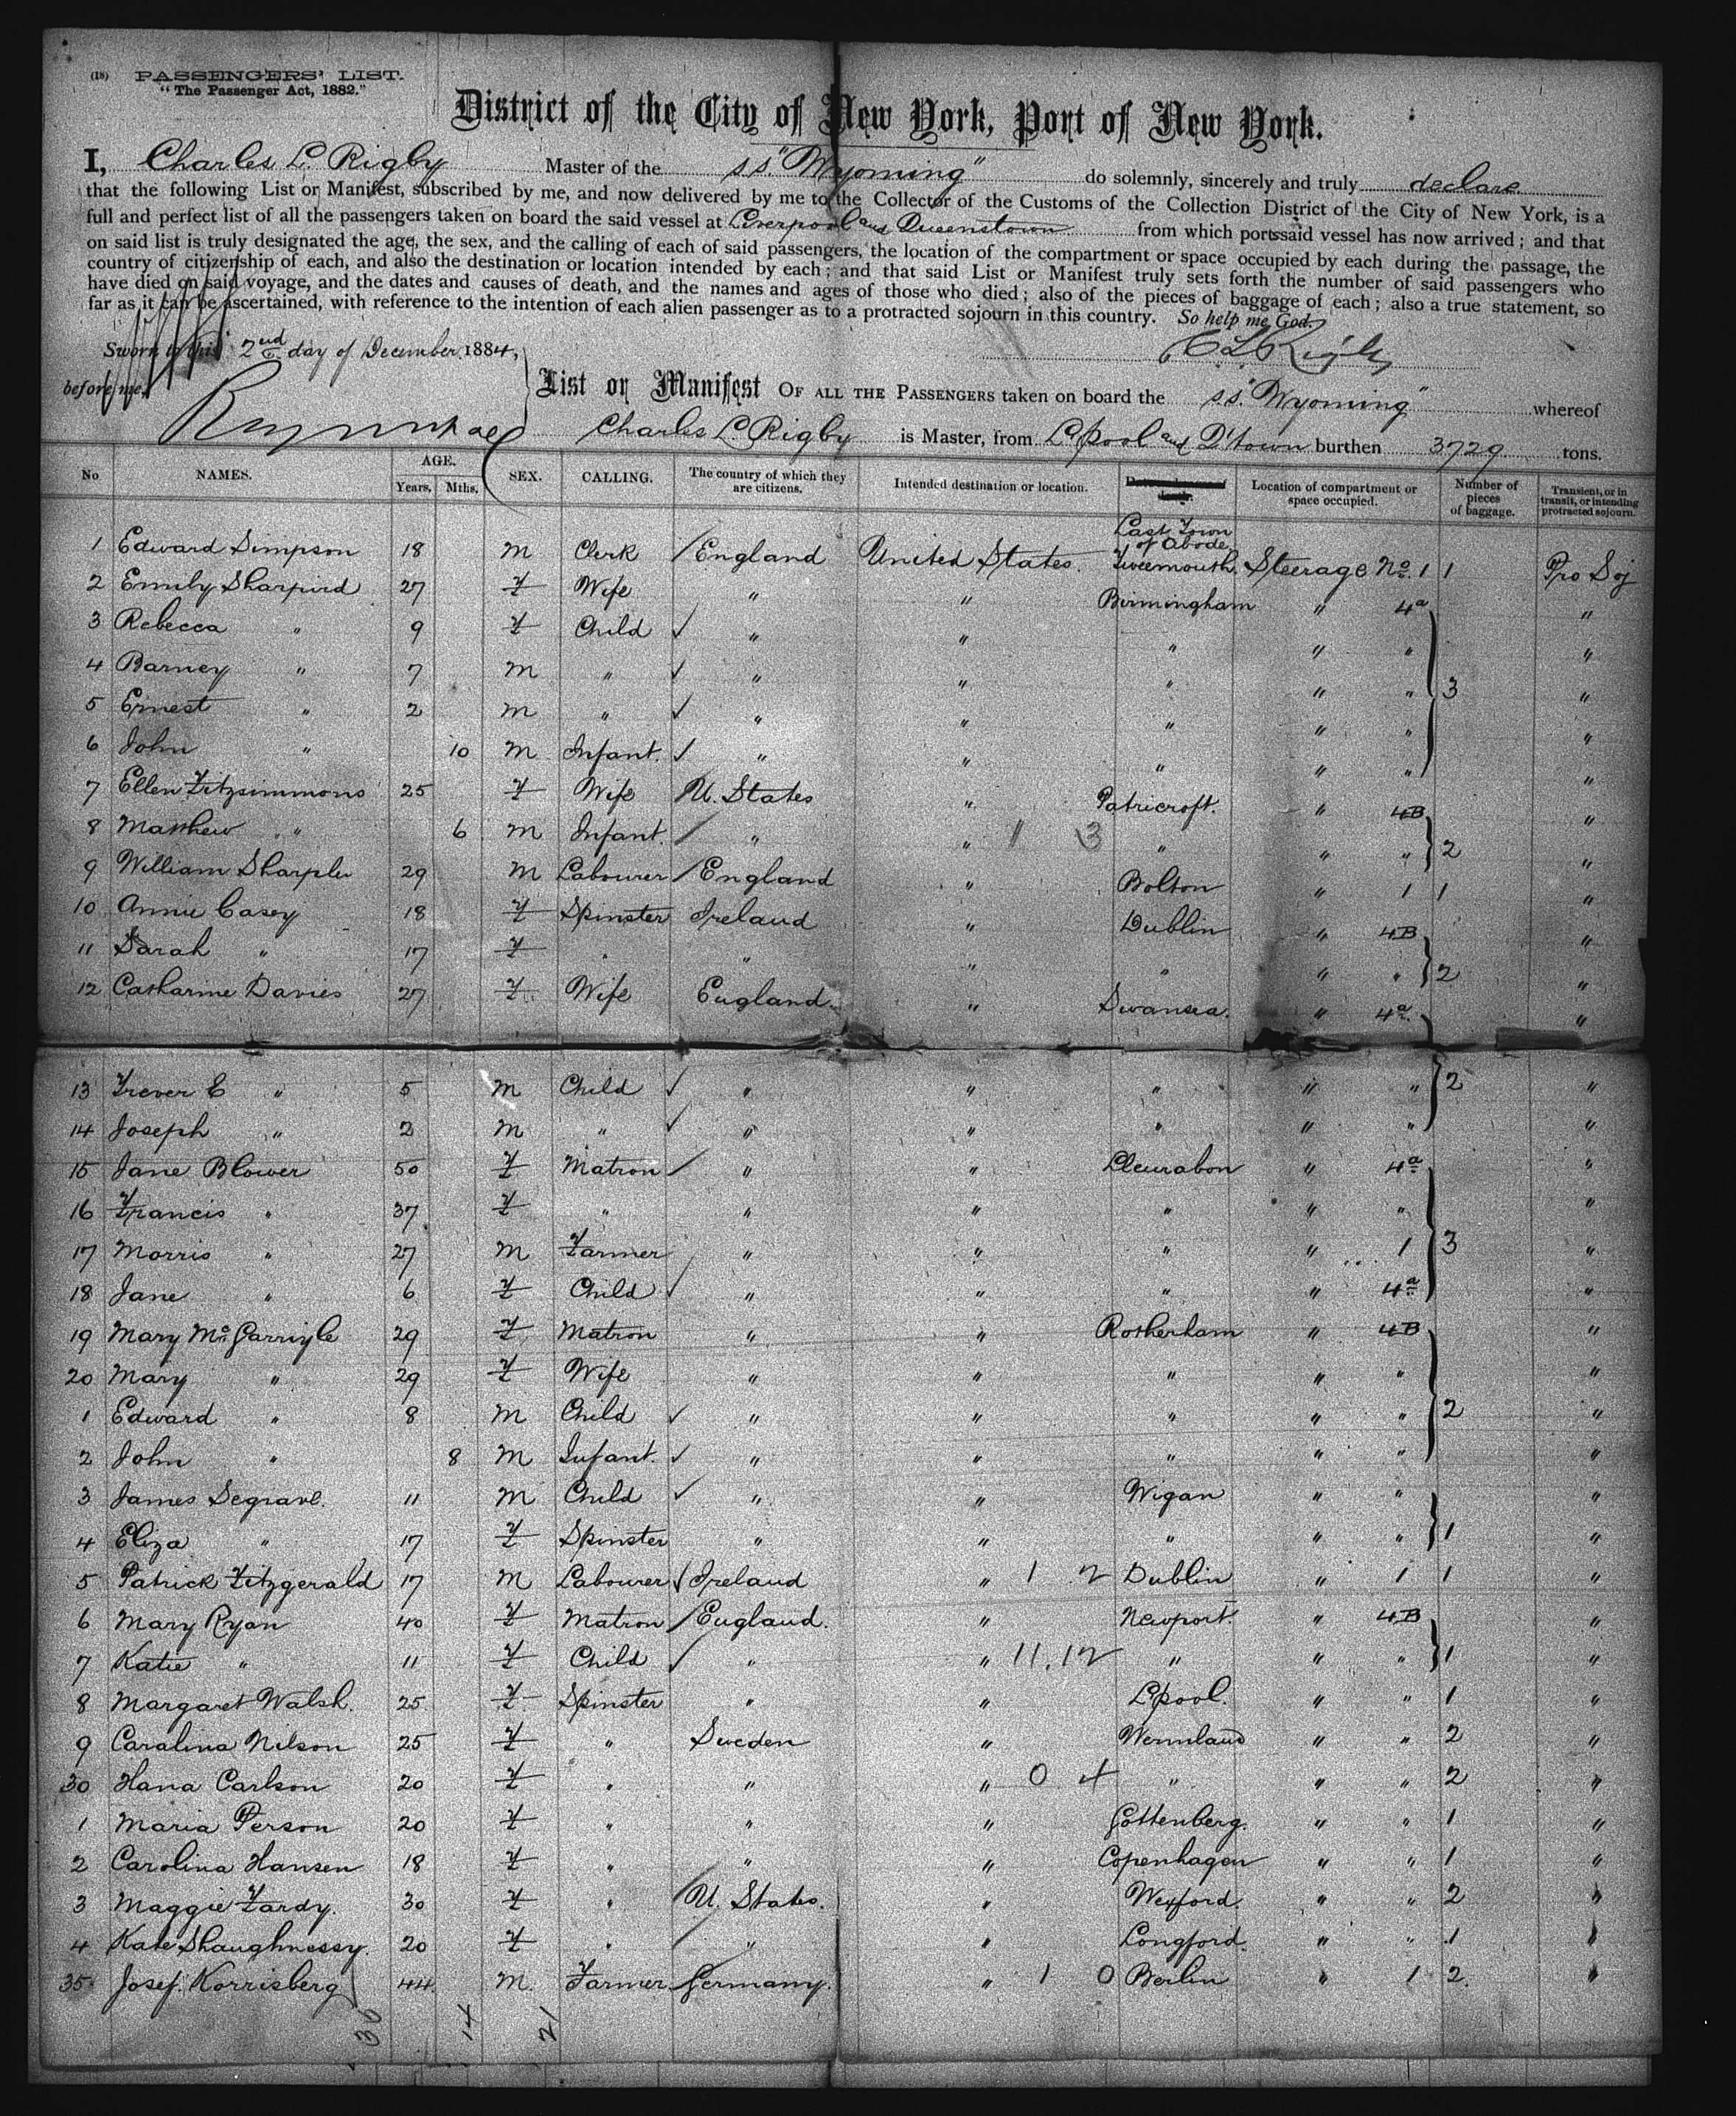 (18) PASSENGERS' LIST.
"The Passenger Act, 1882."
District of the City of New York, Port of New York.
I, Charles L. Rigby Master of the s.s. "Wyoming" do solemnly, sincerely and truly declare
that the following List or Manifest, subscribed by me, and now delivered by me to the Collector of the Customs of the Collection District of the City of New York, is a
full and perfect list of all the passengers taken on board the said vessel at Liverpool and Queenstown from which ports said vessel has now arrived; and that
on said list is truly designated the age, the sex, and the calling of each of said passengers, the location of the compartment or space occupied by each during the passage, the
country of citizenship of each, and also the destination or location intended by each; and that said List or Manifest truly sets forth the number of said passengers who
have died on said voyage, and the dates and causes of death, and the names and ages of those who died; also of the pieces of baggage of each; also a true statement, so
far as it can be ascertained, with reference to the intention of each alien passenger as to a protracted sojourn in this country. So help me God.
Sworn to this 2nd day of December 1884, C L Rigby
before me,
List or Manifest OF ALL THE PASSENGERS taken on board the s.s. "Wyoming" whereof
Charles L. Rigby is Master, from L'pool and Q'town burthen 3729 tons.
No NAMES. AGE. Years. Mths. SEX. CALLING. The country of which they are citizens. Intended destination or location. Last Town of Abode Location of compartment or space occupied. Number of pieces of baggage. Transient, or in transit, or intending protracted sojourn.
1 Edward Simpson 18 M Clerk / England United States. Steerage No. 1 1 Pro Soj
2 Emily Sharpird 27 F Wife " " Birmingham " 4a "
3 Rebecca " 9 F Child ✓ " " " " " "
4 Barney " 7 M " ✓ " " " " " 3 "
5 Ernest " 2 M " ✓ " " " " " "
6 John " 10 M Infant. ✓ " " " " " "
7 Ellen Fitzsimmons 25 F Wife U. States " Patricroft. " 4B "
8 Matthew " 6 M Infant. / " " 1 3 " " " 2 "
9 William Sharples 29 M Labourer / England " Bolton " 1 1 "
10 Annie Casey 18 F Spinster Ireland " Dublin " 4B "
11 Sarah " 17 F " " " " " " 2 "
12 Catharine Davies 27 F Wife England " Swansea. " 4a "
13 Trevor E " 5 M Child ✓ " " " " " 2 "
14 Joseph " 2 M " ✓ " " " " " "
15 Jane Blower 50 F Matron / " " " 4a "
16 Francis " 37 F " " " " " " "
17 Morris " 27 M Farmer " " " " 1 3 "
18 Jane " 6 F Child ✓ " " " " 4a "
19 Mary McGarrigle 29 F Matron " " Rotherham " 4B "
20 Mary " 29 F Wife " " " " " "
1 Edward " 8 M Child ✓ " " " " " 2 "
2 John " 8 M Infant. ✓ " " " " " "
3 James Segrave. 11 M Child ✓ " " Wigan " " "
4 Eliza " 17 F Spinster " " " " " 1 "
5 Patrick Fitzgerald 17 M Labourer ✓ Ireland " 1 2 Dublin " 1 1 "
6 Mary Ryan 40 F Matron / England. " Newport. " 4B "
7 Katie " 11 F Child ✓ " " 11.12 " " " 1 "
8 Margaret Walsh. 25 F Spinster " " L'pool. " " 1 "
9 Caralina Nilson 25 F " Sweden " Wermland " " 2 "
30 Hana Carlson 20 F " " " 0 4 " " " 2 "
1 Maria Person 20 F " " " Gottenberg. " " 1 "
2 Carolina Hansen 18 F " " " Copenhagen " " 1 "
3 Maggie Fardy. 30 F " / U. States. " Wexford. " " 2 "
4 Kate Shaughnessy. 20 F " / " " Longford. " " 1 "
35 Josef Korrisberg 44 M. Farmer Germany. " 1 0 Berlin " 1 2. "
14 21